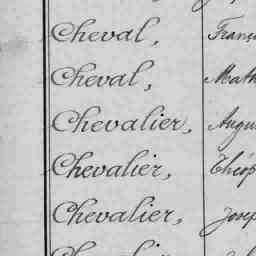 Cheval, Franç
Cheval, Math
Chevalier, Augu
Chevalier, Théop
Chevalier, Josep